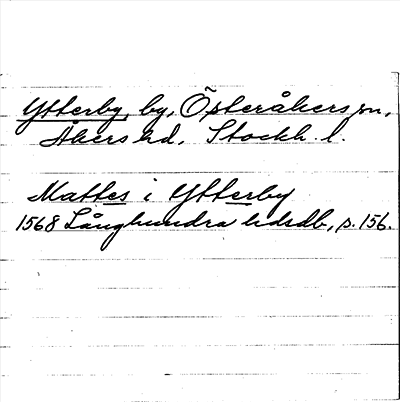 Ytterby, by, Österåkers sn,
Åkers hd, Stockh. l.
Mattes i Ytterby
1568 Långhundra hdsdb, s. 156.